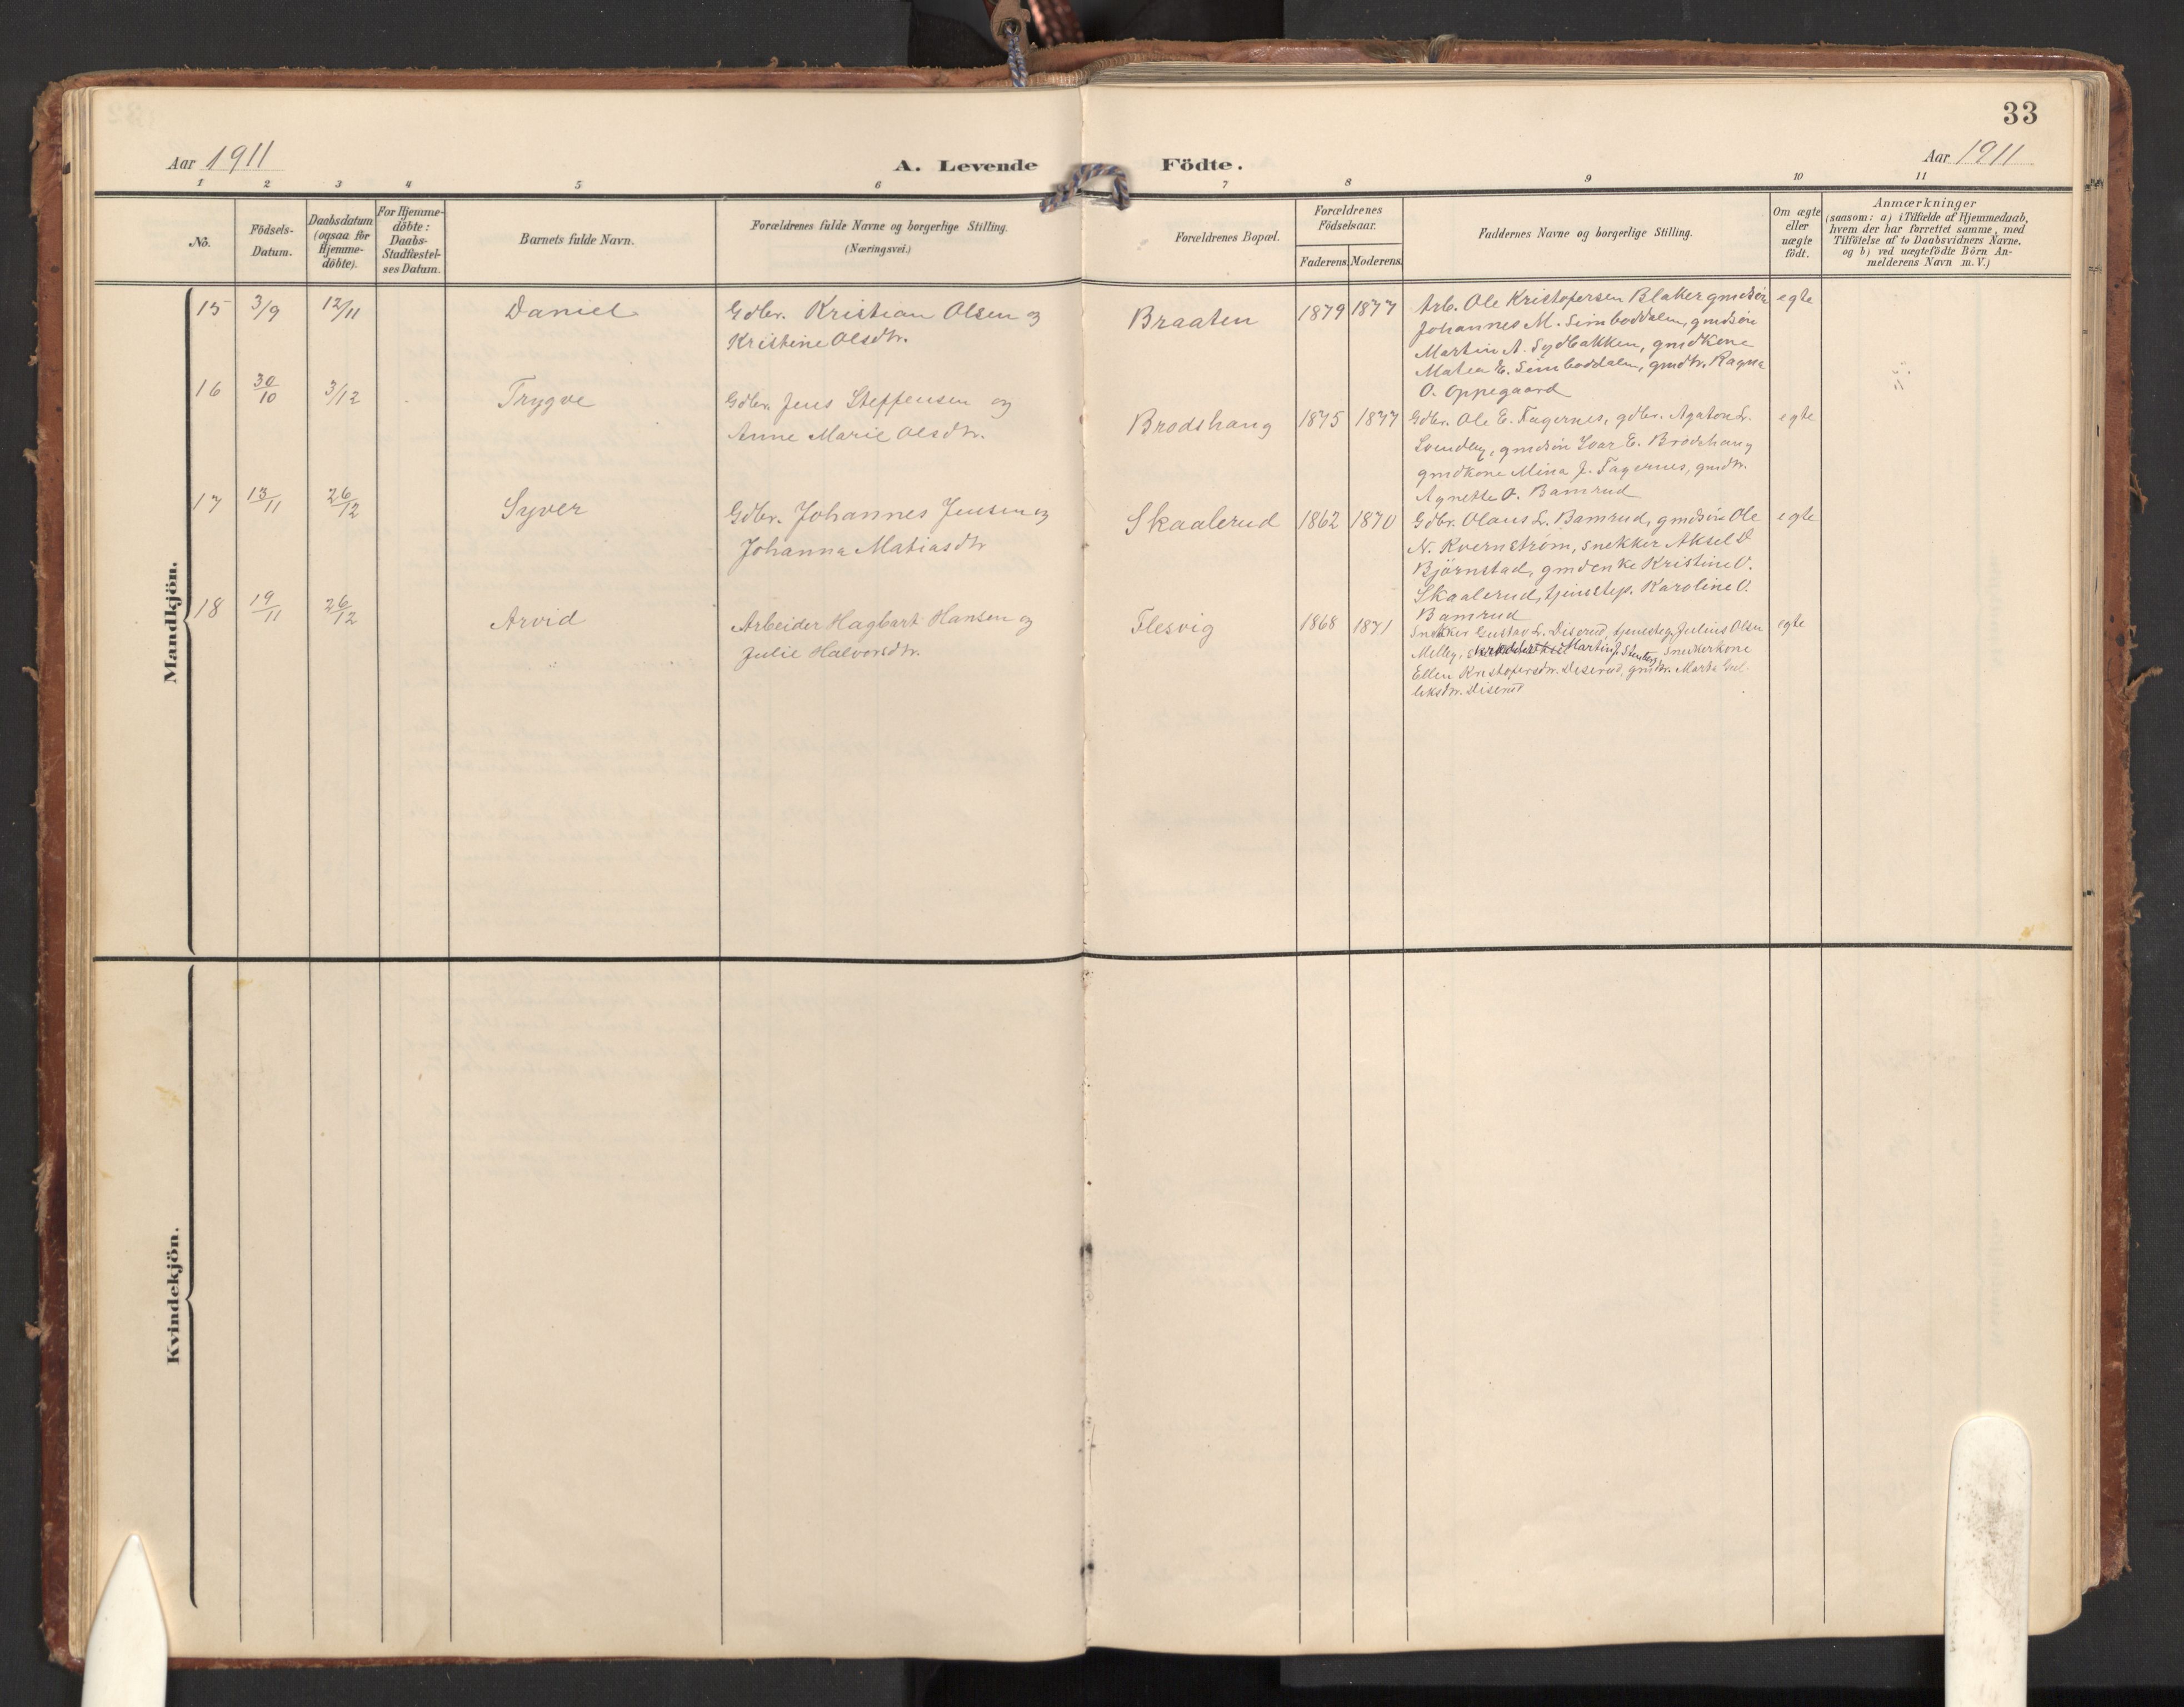 33
Aar 1911
A. Levende Födte.
Aar 1911
1 2 3 4 5 6 7 8 9 10 11
No.
Födsels-
Datum.
Daabsdatum
(ogsaa for
Hjemme-
döbte).
For Hjemme-
döbte:
Daabs-
Stadfæstel-
ses Datum.
Barnets fulde Navn.
Forældrenes fulde Navne og borgerlige Stilling.
(Næringsvei.)
Forældrenes Bopæl.
Forældrenes
Födselsaar.
Faderens. Moderens.
Faddernes Navne og borgerlige Stilling.
Om ægte
eller
uægte
födt.
Anmærkninger
(saasom: a) i Tilfælde af Hjemmedaab,
hvem der har forrettet samme, med
Tilföielse af to Daabsvidners Navne.
og b) ved uægtefödte Börn An-
melderens Navn m. V.)
Mandkjön.
15 3/9 12/11 Daniel
Gdbr. Kristian Olsen og
Kristine Olsdtr.
Braaten 1879 1877
Arb. Ole Kristofersen Blaker gmdsön
Johannes M. Simboddalen, gmdsön
Martin A. Sydbakken, gmdkone
Matea E. Simboddalen, gmdtr. Ragna
O. Oppegaard
egte
16 30/10 3/12 Trygve
Gdbr. Jens Steffensen og
Anne Marie Olsdtr.
Brodshaug 1875 1877
Gdbr. Ole E. Fagernes, gdbr. Agaton L.
Lundby, gmdsön Ivar E. Brodshaug
gmdkone Mina J. Fagernes, gmdtr.
Agnette O. Bamrud
egte
17 13/11 26/12 Syver
Gdbr. Johannes Jensen og
Johanna Matiasdtr
Skaalerud 1862 1870
Gdbr. Olaus L. Bamrud, gmdsön Ole
N. Kvernström, snekker Aksel
Björnstad, gmdenke Kristine O.
Skaalerud, tjenestep. Karoline O.
Bamrud
egte
18 19/11 26/12 Arvid
Arbeider Hagbart Hansen og
Julie Halvorsdtr.
Flesvig 1868 1871
Snekker Gustav L. Diserud, tjenesteg. Julius Olsen
Melby, Martin J. Stenberg, Snekkerkone
Ellen Kristofersdtr. Diserud, gmdtr. Marta Gul-
liksdtr. Diserud
egte
Kvindekjön.